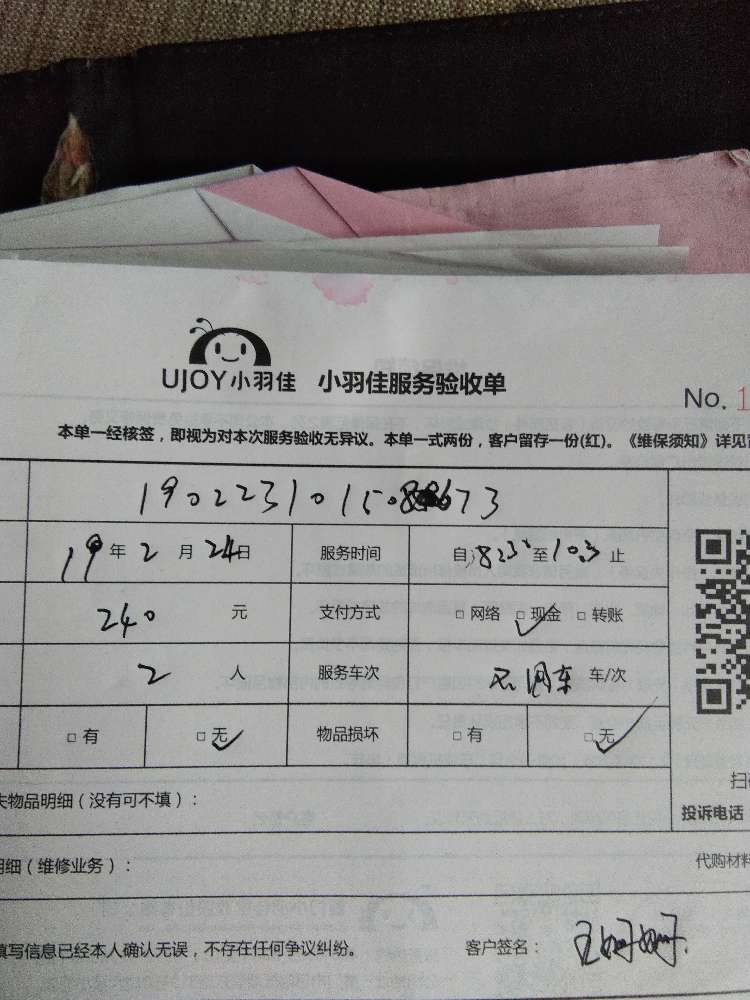 UJOY小羽佳 小羽佳服务验收单
No. 1
本单一经核签，即视为对本次服务验收无异议。本单一式两份，客户留存一份(红)。《维保须知》详见
19年2月24日 服务时间 自8:30至10:3止
240元 支付方式 □网络 □现金 □转账
2人 服务车次 无用车 车/次
□有 □无 物品损坏 □有 □无
失物品明细（没有可不填）：
投诉电话
明细（维修业务）：
代购材料
填写信息已经本人确认无误，不存在任何争议纠纷。 客户签名：